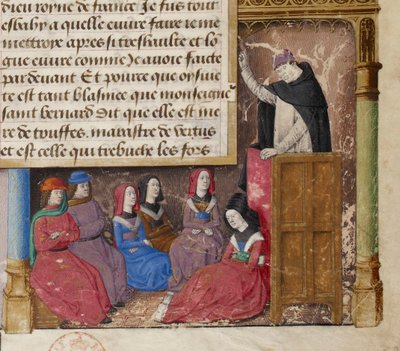 dieu royne de france Je fus tout
esbahy a quelle euure faire ne me
mettroye apres si treshaulte et lo
gue euure comme Jeauoie faicte
par deuant Et pource que oysiue
te est tant blasmee que monseignr
saint bernard Dit que elle est me
re de truffes. marastre de vertus
et est celle qui trebuche les fors